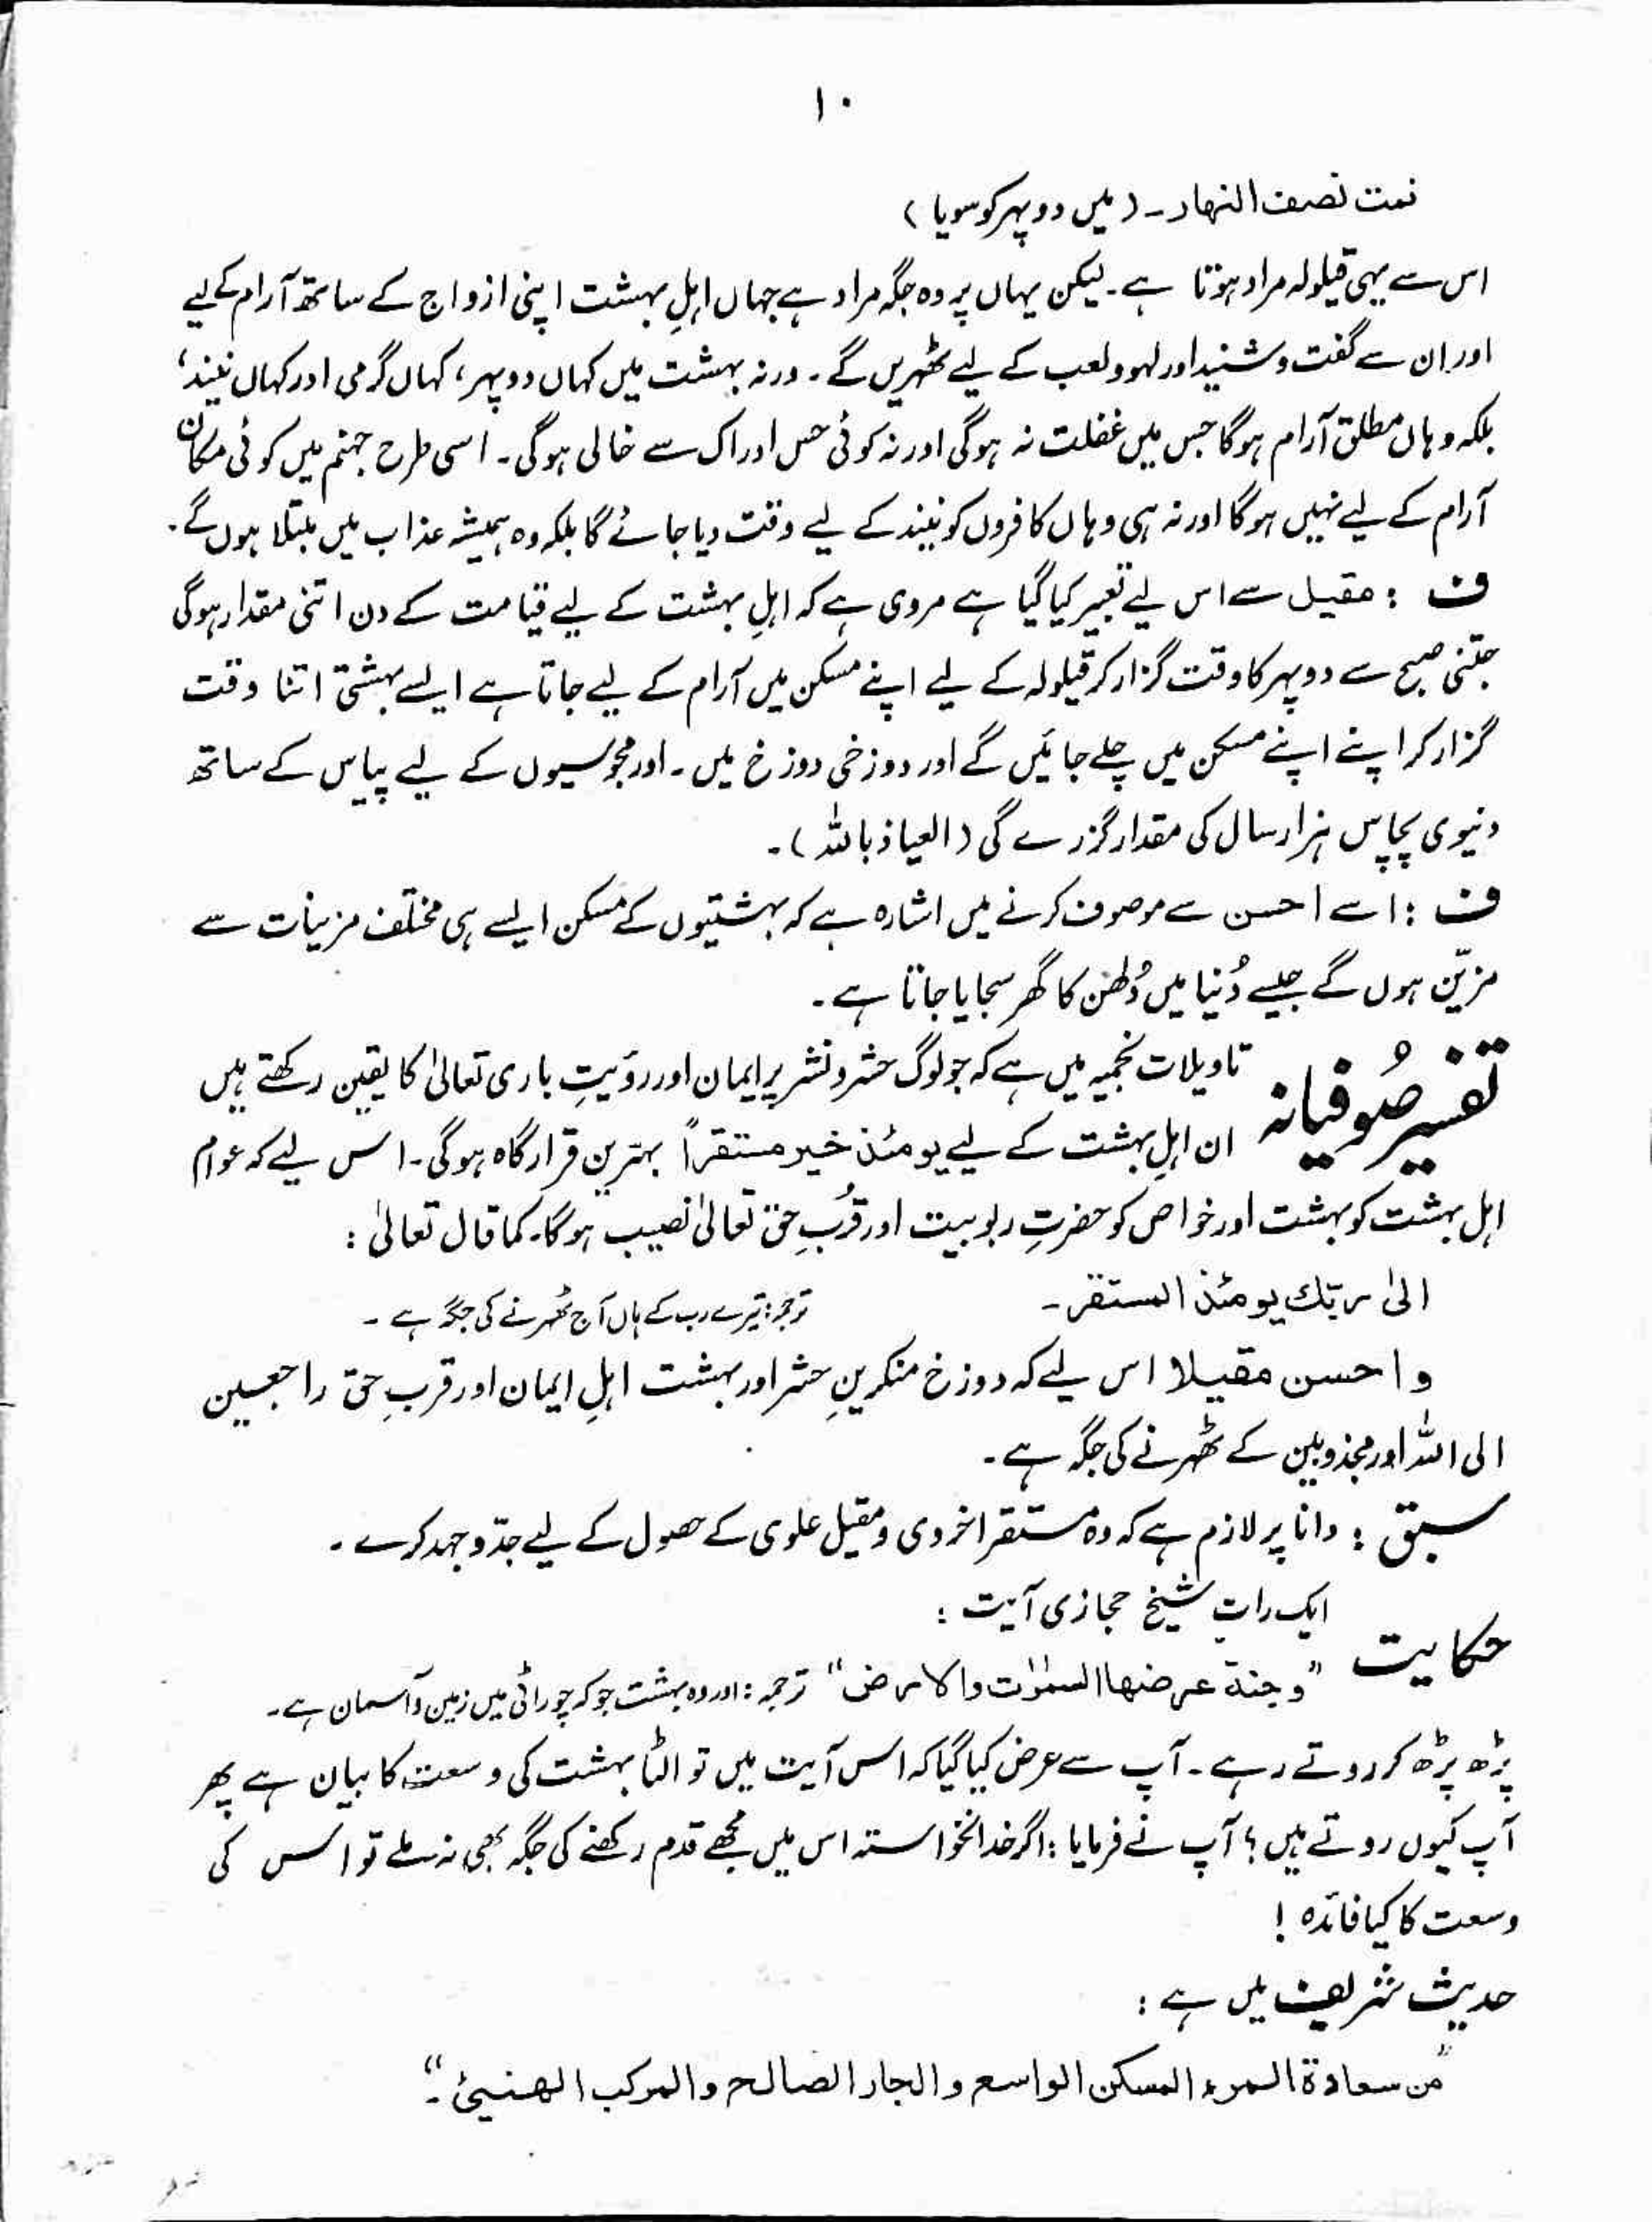 ۱۰
نمت نصف النهار۔ (میں دوپہر کو سویا)
اس سے یہی قیلولہ مراد ہوتا ہے۔ لیکن یہاں پر وہ جگہ مراد ہے جہاں اہلِ بہشت اپنی ازواج کے ساتھ آرام کے لیے
اور ان سے گفت و شنید اور لہو و لعب کے لیے ٹھہریں گے۔ ورنہ بہشت میں کہاں دوپہر، کہاں گرمی اور کہاں نیند،
بلکہ وہاں مطلق آرام ہوگا جس میں غفلت نہ ہوگی اور نہ کوئی حس ادراک سے خالی ہوگی۔ اسی طرح جہنم میں کوئی مکان
آرام کے لیے نہیں ہوگا اور نہ ہی وہاں کافروں کو نیند کے لیے وقت دیا جائے گا بلکہ وہ ہمیشہ عذاب میں مبتلا ہوں گے۔
ف : مقیل سے اس لیے تعبیر کیا گیا ہے مروی ہے کہ اہلِ بہشت کے لیے قیامت کے دن اتنی مقدار ہوگی
جتنی صبح سے دوپہر کا وقت گزار کر قیلولہ کے لیے اپنے مسکن میں آرام کے لیے جاتا ہے ایسے بہشتی اتنا وقت
گزار کر اپنے اپنے مسکن میں چلے جائیں گے اور دوزخی دوزخ میں۔ اور مجوسیوں کے لیے پیاس کے ساتھ
دنیوی پچاس ہزار سال کی مقدار گزرے گی (العیاذ باللہ)۔
ف : اسے احسن سے موصوف کرنے میں اشارہ ہے کہ بہشتیوں کے مسکن ایسے ہی مختلف مزینات سے
مزیّن ہوں گے جیسے دُنیا میں دُلھن کا گھر سجایا جاتا ہے۔
تفسیر صُوفیانہ تاویلات نجمیہ میں ہے کہ جو لوگ حشر و نشر پر ایمان اور رؤیتِ باری تعالیٰ کا یقین رکھتے ہیں
ان اہلِ بہشت کے لیے یومئذ خیر مستقراً بہترین قرارگاہ ہوگی۔ اس لیے کہ عوام
اہل بہشت کو بہشت اور خواص کو حضرتِ ربوبیت اور قُربِ حق تعالیٰ نصیب ہوگا۔ کما قال تعالیٰ :
الیٰ ربّك یومئذ المستقر۔ ترجمہ: تیرے رب کے ہاں آج ٹھہرنے کی جگہ ہے۔
و احسن مقیلا اس لیے کہ دوزخ منکرینِ حشر اور بہشت اہلِ ایمان اور قربِ حق راجعین
الی اللہ اور مجذوبین کے ٹھہرنے کی جگہ ہے۔
سبق : دانا پر لازم ہے کہ وہ مستقر اخروی و مقیل علوی کے حصول کے لیے جدّ و جہد کرے۔
حکایت ایک رات شیخ حجازی آیت :
"وجنة عرضها السمٰوٰت والارض" ترجمہ : اور وہ بہشت جو کہ چورائی میں زمین و آسمان ہے۔
پڑھ پڑھ کر روتے رہے۔ آپ سے عرض کیا گیا کہ اس آیت میں تو الٹا بہشت کی وسعت کا بیان ہے پھر
آپ کیوں روتے ہیں؟ آپ نے فرمایا : اگر خدانخواستہ اس میں مجھے قدم رکھنے کی جگہ بھی نہ ملے تو اس کی
وسعت کا کیا فائدہ !
حدیث شریف میں ہے :
"من سعادة المرء المسكن الواسع والجار الصالح والمركب الهنيئ۔"